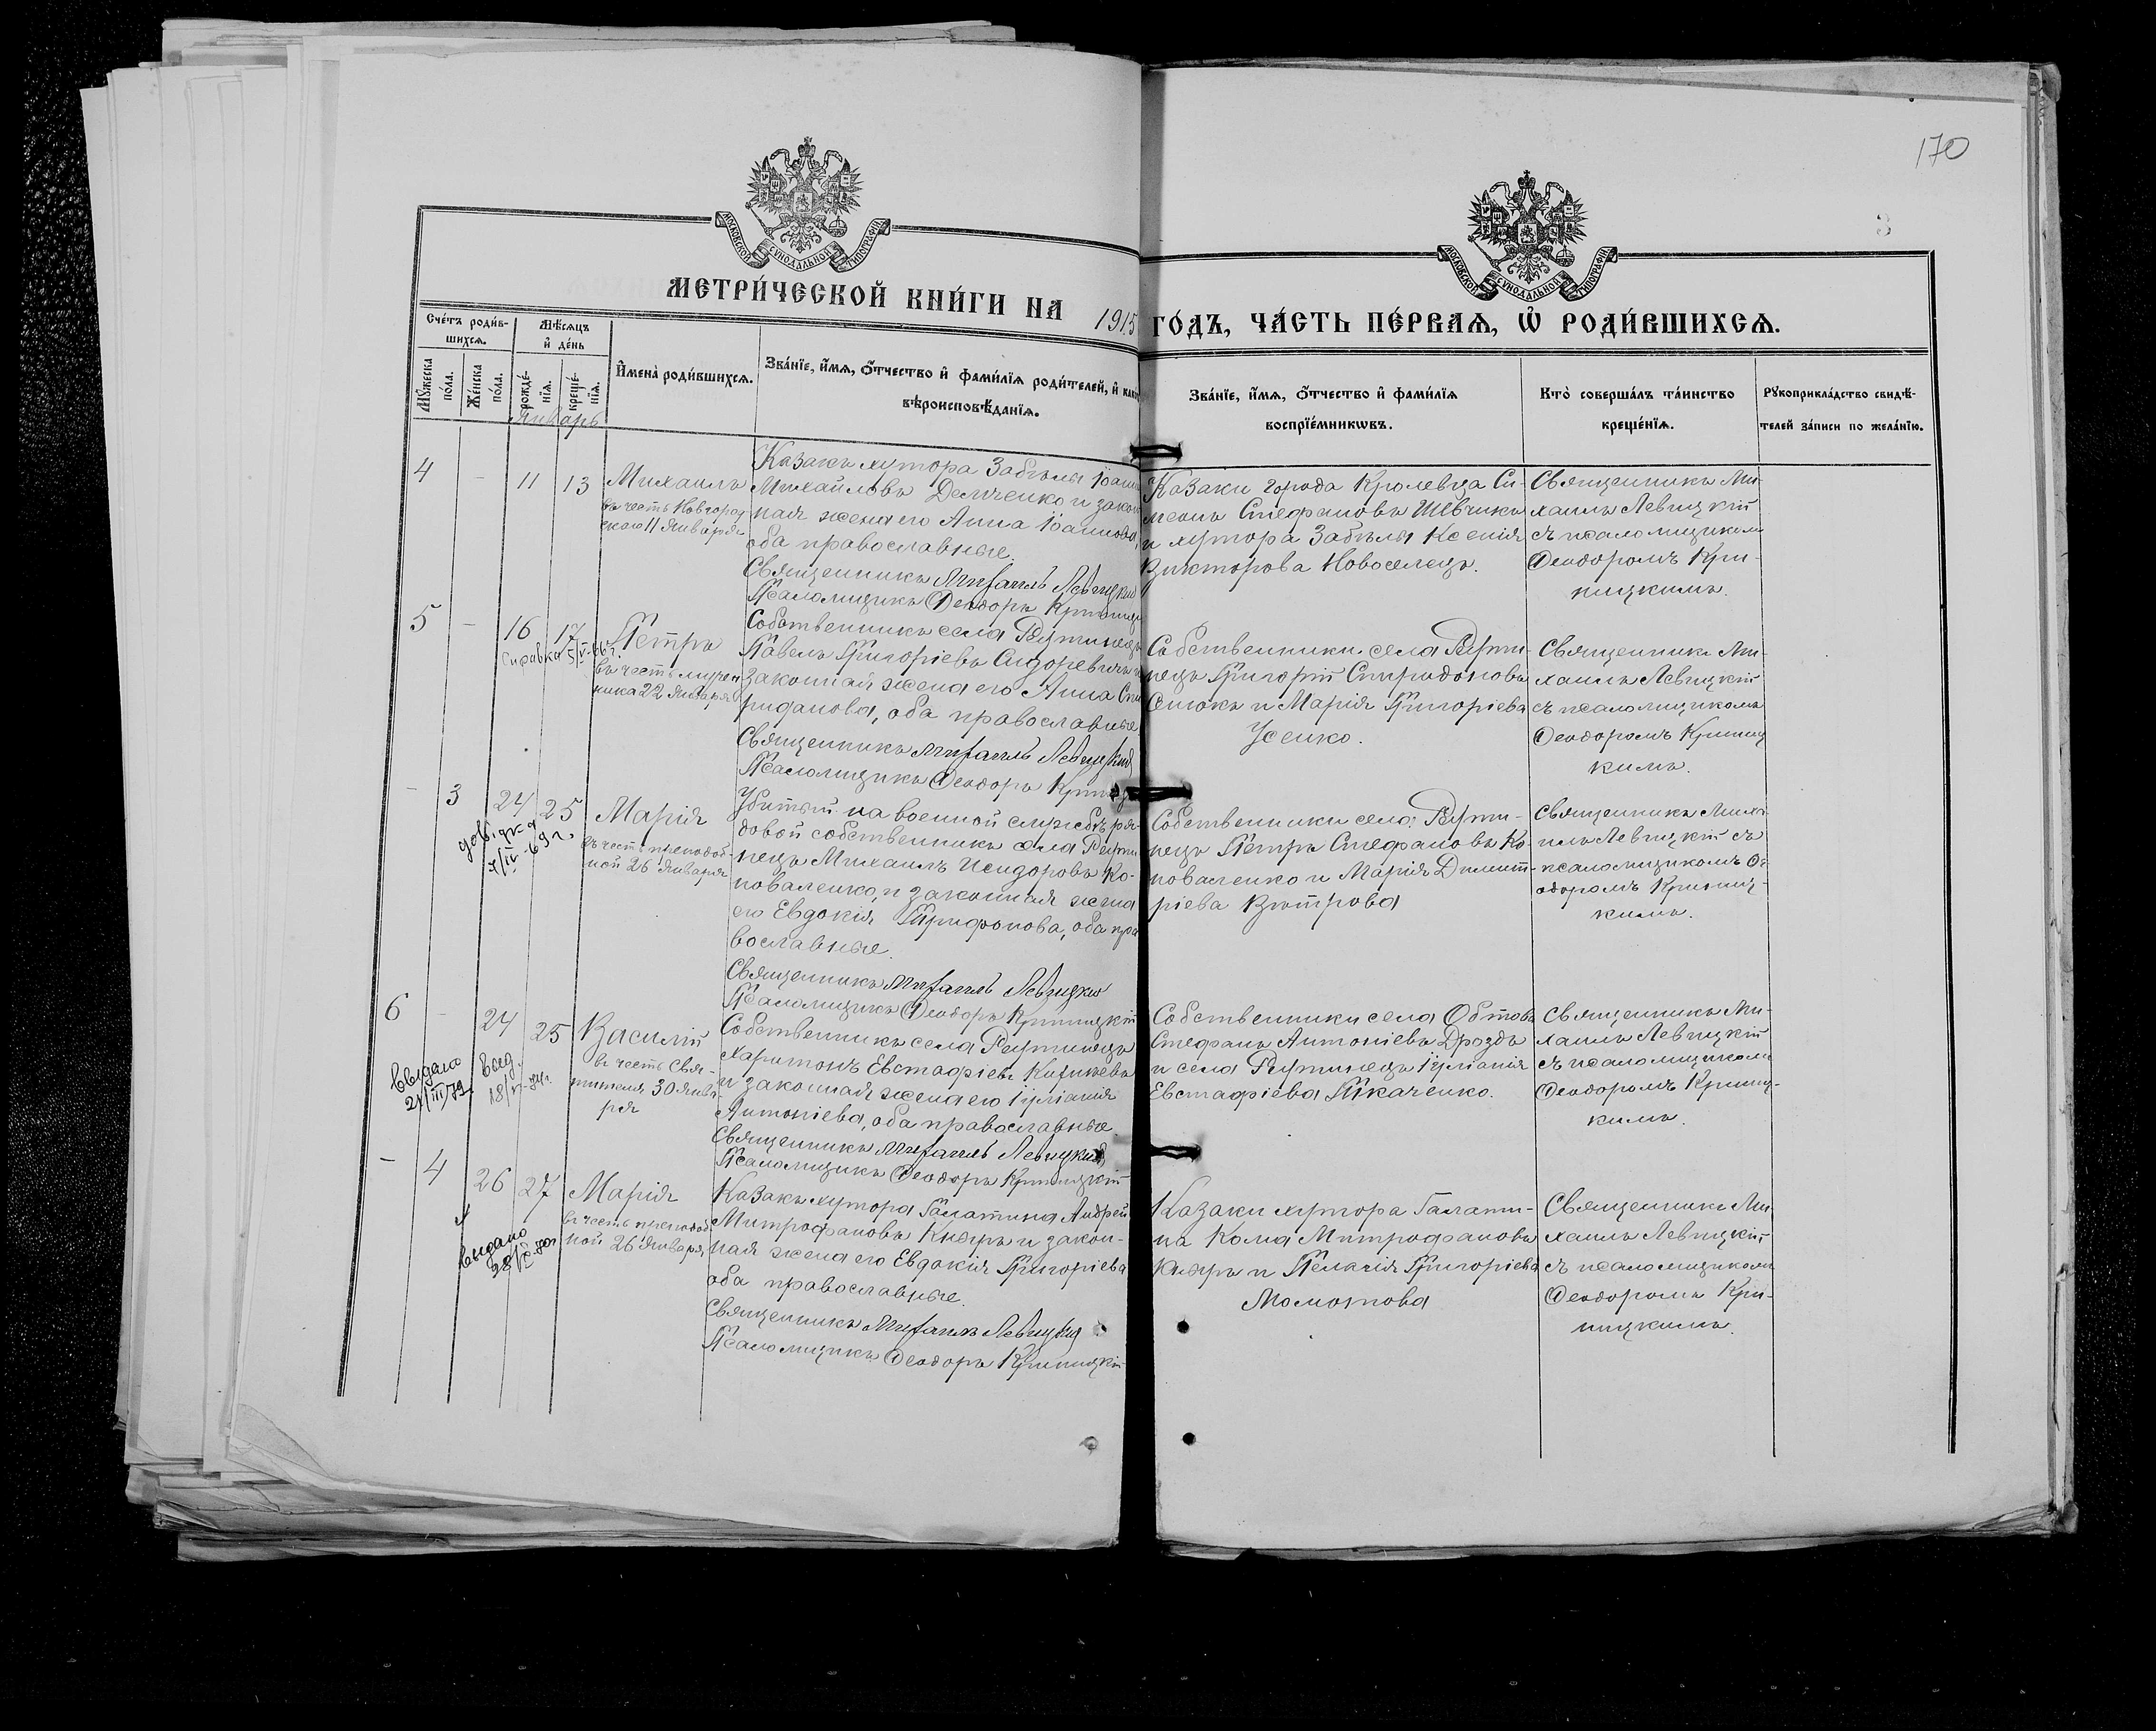 170
3
МОСКОВСКОЙ СѴНОДАЛЬНОЙ ТИПОГРАФІИ
МОСКОВСКОЙ СѴНОДАЛЬНОЙ ТИПОГРАФІИ
МЕТРИ́ЧЕСКОЙ КНИ́ГИ НА 1915 ГО́ДЪ, ЧА́СТЬ ПЕ́РВАѦ, Ѡ҆ РОДИ́ВШИХСѦ.
Сче́тъ роди́в-
шихсѧ.
Мꙋ́жеска по́ла.
Же́нска по́ла.
Мѣ́сѧцъ и҆ де́нь
рожде́-нїѧ.
креще́-нїѧ.
И҆мена̀ роди́вшихсѧ.
Зва́нїе, и҆́мѧ, ѻ҆́тчество и҆ фами́лїѧ роди́телей, и҆ како
вѣроисповѣ́данїѧ.
Зва́нїе, и҆́мѧ, ѻ҆́тчество и҆ фами́лїѧ
воспрїе́мникѡвъ.
Кто̀ соверша́лъ та́инство
креще́нїѧ.
Рꙋкоприкла́дство свидѣ́-
телей за́писи по жела́нїю.
Январь
4 - 11 13 Михаилъ
въ честь Новгород
скаго 11 января
Казакъ хутора Забѣлы Іоанн
Михайловъ Демченко и закон
ная жена его Анна Іоаннова,
оба православные.
Священникъ Михаилъ Левицкій
Псаломщикъ Ѳеодоръ Криницк
Казаки города Кролевца Си-
меонъ Стефановъ Шевчикъ
и хутора Забѣлы Ксенія
Викторова Новоселецъ.
Священникъ Ми-
хаилъ Левицкій
съ псаломщикомъ
Ѳеодоромъ Кри-
ницкимъ.
5 - 16 17 Петръ
Справка 5/V-66 г.
въ честь
22 января
Собственникъ села Реутинецъ
Павелъ Григоріевъ Сидоревичъ и
законная жена его Анна Спи
ридонова, оба православные
Священникъ Михаилъ Левицкій
Псаломщикъ Ѳеодоръ Криницк
Собственники села Реути-
нецъ Григорій Спиридоновъ
Ситокъ и Марія Григоріева
Усенко.
Священникъ Ми-
хаилъ Левицкій
съ псаломщикомъ
Ѳеодоромъ Криниц
кимъ.
- 3 24 25 Марія
довідка
4/IV-69 г.
въ честь преподоб-
ной 26 января
Убитый на военной службѣ ря-
довой собственникъ села Реути
нецъ Михаилъ Исидоровъ Ко-
новаленко, и законная жена
его Евдокія Трифонова, оба пра
вославные.
Священникъ Михаилъ Левицкій
Псаломщикъ Ѳеодоръ Криницкій
Собственники села Реути-
нецъ Петръ Стефановъ Ко-
новаленко и Марія Димит-
ріева Вѣтрова
Священникъ Миха
илъ Левицкій съ
псаломщикомъ Ѳе
одоромъ Криниц-
кимъ.
6 - 24 25 Василій
выдано
21/III 79 г.
выд.
18/V-74 г.
въ честь свя-
тителя 30 янва-
ря
Собственникъ села Реутинецъ
Харитонъ Евстафіевъ
и законная жена его Іуліанія
Антоніева, оба православные.
Священникъ Михаилъ Левицкій
Псаломщикъ Ѳеодоръ Криницкій
Собственники села Обтовъ
Стефанъ Антоніевъ Дроздъ
и села Реутинецъ Іуліанія
Евстафіева Ткаченко.
Священникъ Ми-
хаилъ Левицкій
съ псаломщикомъ
Ѳеодоромъ Криниц-
кимъ.
- 4 26 27 Марія
выдано
въ честь преподоб
ной 26 января
Казакъ хутора Галатина Андрей
Митрофановъ Кнырь и закон-
ная жена его Евдокія Григоріева
оба православные.
Священникъ Михаилъ Левицкій
Псаломщикъ Ѳеодоръ Криницкій
Казаки хутора Галати-
на Козма Митрофановъ
Кнырь и Пелагія Григоріева
Момотова
Священникъ Ми-
хаилъ Левицкій
съ псаломщикомъ
Ѳеодоромъ Кри-
ницкимъ.